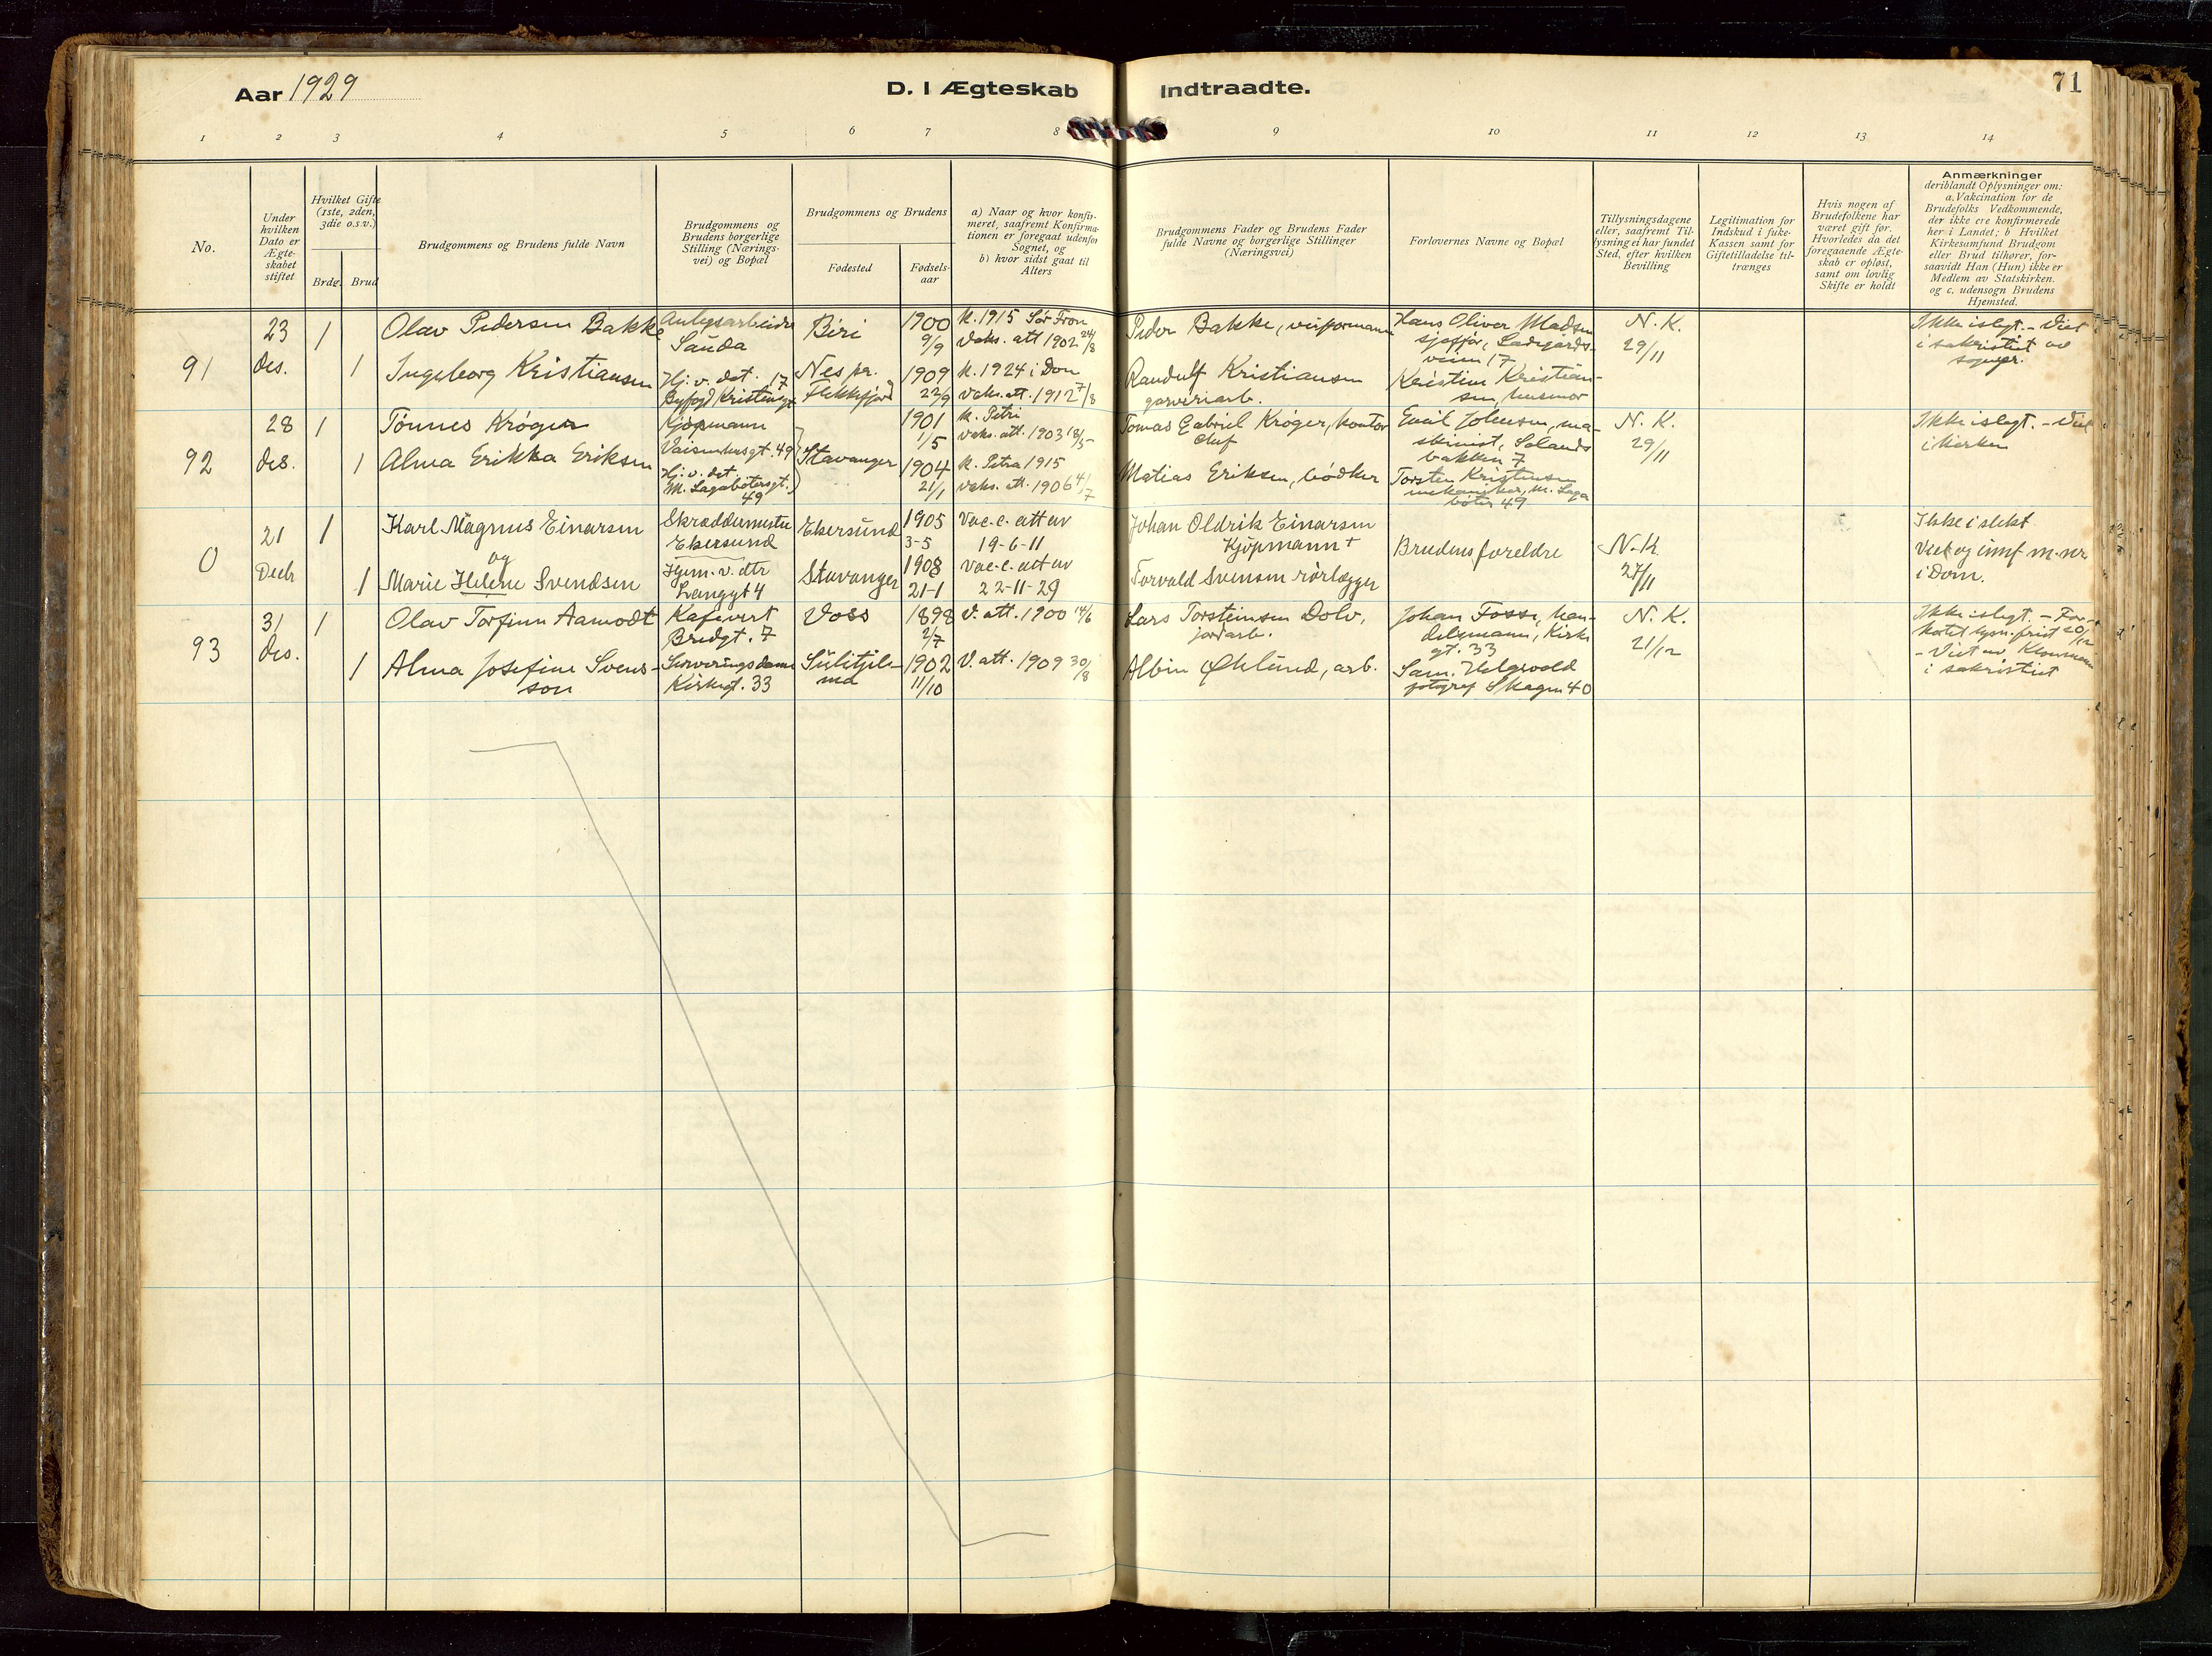 Aar 1929
D. I Ægteskab Indtraadte.
71
1 2 3 4 5 6 7 8 9 10 11 12 13 14
No.
Under hvilken Dato er Ægteskabet stiftet
Hvilket Gifte (1ste, 2den, 3die o.s.v.)
Brdg. Brud
Brudgommens og Brudens fulde Navn
Brudgommens og Brudens borgerlige Stilling (Næringsvei) og Bopæl
Brudgommens og Brudens
Fødested
Fødselsaar
a) Naar og hvor konfirmeret, saafremt Konfirmationen er foregaat udenfor Sognet, og
b) hvor sidst gaat til Alters
Brudgommens Fader og Brudens Fader fulde Navne og borgerlige Stillinger (Næringsvei)
Forlovernes Navne og Bopæl
Tillysningsdagene eller, saafremt Tillysning ei har fundet Sted, efter hvilken Bevilling
Legitimation for Indskud i fuke-Kassen samt for Giftetilladelse tiltrænges
Hvis nogen af Brudefolkene har været gift før. Hvorledes da det foregaaende Ægteskab er opløst, samt om lovlig Skifte er holdt
Anmærkninger
deriblandt Oplysninger om: a. Vakcination for de Brudefolks Vedkommende, der ikke ere konfirmerede her i Landet; b Hvilket Kirkesamfund Brudgom eller Brud tilhører, forsaavidt Han (Hun) ikke er Medlem av Statskirken. og c. udensogn Brudens Hjemsted.
91
23 des.
1
Olav Pedersen Bakke
Anlegsarbeider
Sauda
Biri
1900
9/9
K. 1915 Sør Fron
Vaks. att 1902 24/8
Peder Bakke, veiformann
Hans Oliver Madsen
sjaffør, Ladegårds-
veien 17
N. K.
29/11
Ikke i slegt. - Viet
i sakristiet av
sogнepr.
1
Ingeborg Kristiansen
Hj. v. det. 17
Byfogd Kristensgt
Nes pr.
Flekkefjord
1909
22/9
K. 1924 i Dom
Vaks. att. 1912 7/8
Randulf Kristiansen
garveriarb.
Kristine Kristian-
sen, husmor
92
28 des.
1
Tønnes Krøger
Kjøpmann
Vaisenhusgt. 49
Stavanger
1901
1/5
K. Petri
Vaks. att. 1903 18/5
Tomas Gabriel Krøger, kontor
chef
Emil Johnsen, ma-
skinist, Solands
bakken 7
N. K.
29/11
Ikke i slegt. - Viet
i kirken
1
Alma Erikka Eriksen
Hj. v. det.
M. Lagabøtersgt.
49
1904
21/1
K. Petra 1915
Vaks. att. 1906 4/7
Matias Eriksen, bødker
Torsten Kristensen
mekaniker, M. Laga
bøter 49
0
21
Decbr
1
Karl Magnus Einarsen
og
Skreddermester
Ekersund
Ekersund
1905
3-5
Vac. e. att av
19-6-11
Johan Oldrik Einarsen
Kjøpmann +
Brudens foreldre
N. K
27/11
Ikke i slekt
Viet og innf m. nr
i Dom.
1
Marie Helene Svendsen
Hjem. v. dtr
Langgt 4
Stavanger
1908
21-1
Vac. e. att av
22-11-29
Torvald Svensen rørlægger
93
31 des.
1
Olav Torfinn Aamodt
Kafevert
Bredgt. 7
Voss
1898
2/7
V. att. 1900 14/6
Lars Torsteinsen Dolv,
jordarb.
Johan Fosse, han-
delsmann, Kirke
gt. 33
N. K.
21/12
Ikke i slegt. - For-
kortet lysn. frist 20/12
- Viet av
i sakristiet
1
Alma Josefine Svens-
son
Serveringsdame
Kirkegt. 33
Sulitjel-
ma
1902
11/10
V. att. 1909 30/8
Albin Øklund, arb.
Sam. Helgevold
fotograf Skagen 40